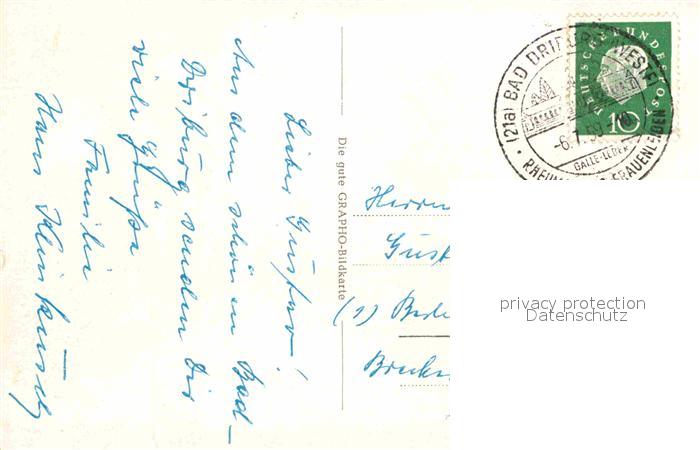 Lieber Gustav!
Aus dem schönen Bad-
Driburg senden Dir
viele Grüße
Familie
Hans
Die gute GRAPHO-Bildkarte
Herrn
Gust
(1) Berl
DEUTSCHE BUNDESPOST
10
(21a) BAD DRIBURG (WESTF)
-6.7.59
GALLE-LEBER
RHEUMA FRAUENLEIDEN
privacy protection
Datenschutz